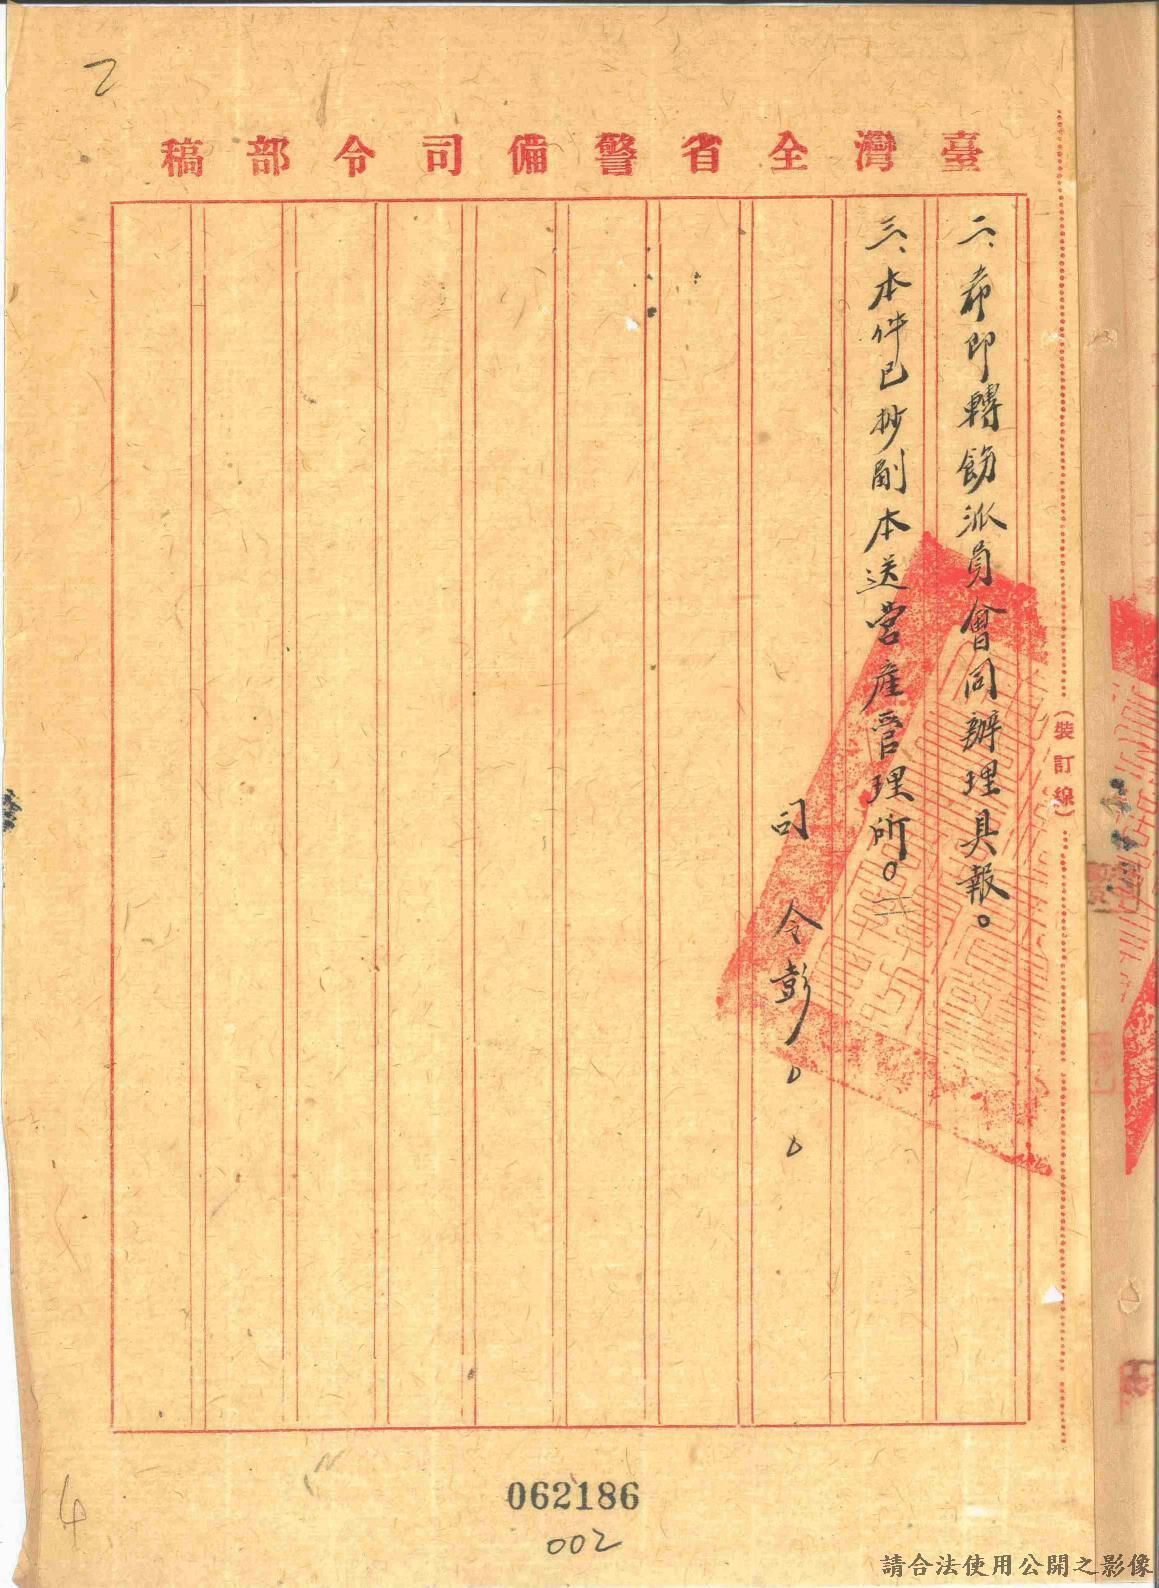 乙
臺灣全省警備司令部稿
二、希即轉飭派員會同辦理具報。
三、本件已抄副本送营產管理所。
司令彭〇〇
（裝訂線）
062186
002
4
請合法使用公開之影像